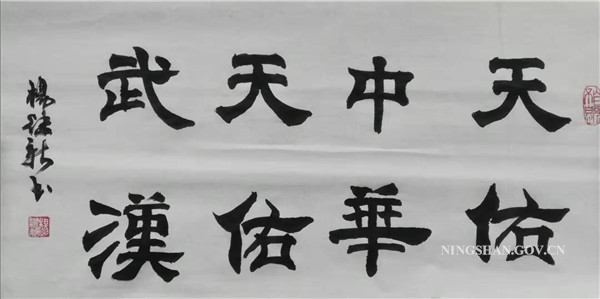 天佑
中華
天佑
武漢
楊 新书
NINGSHAN.GOV.CN